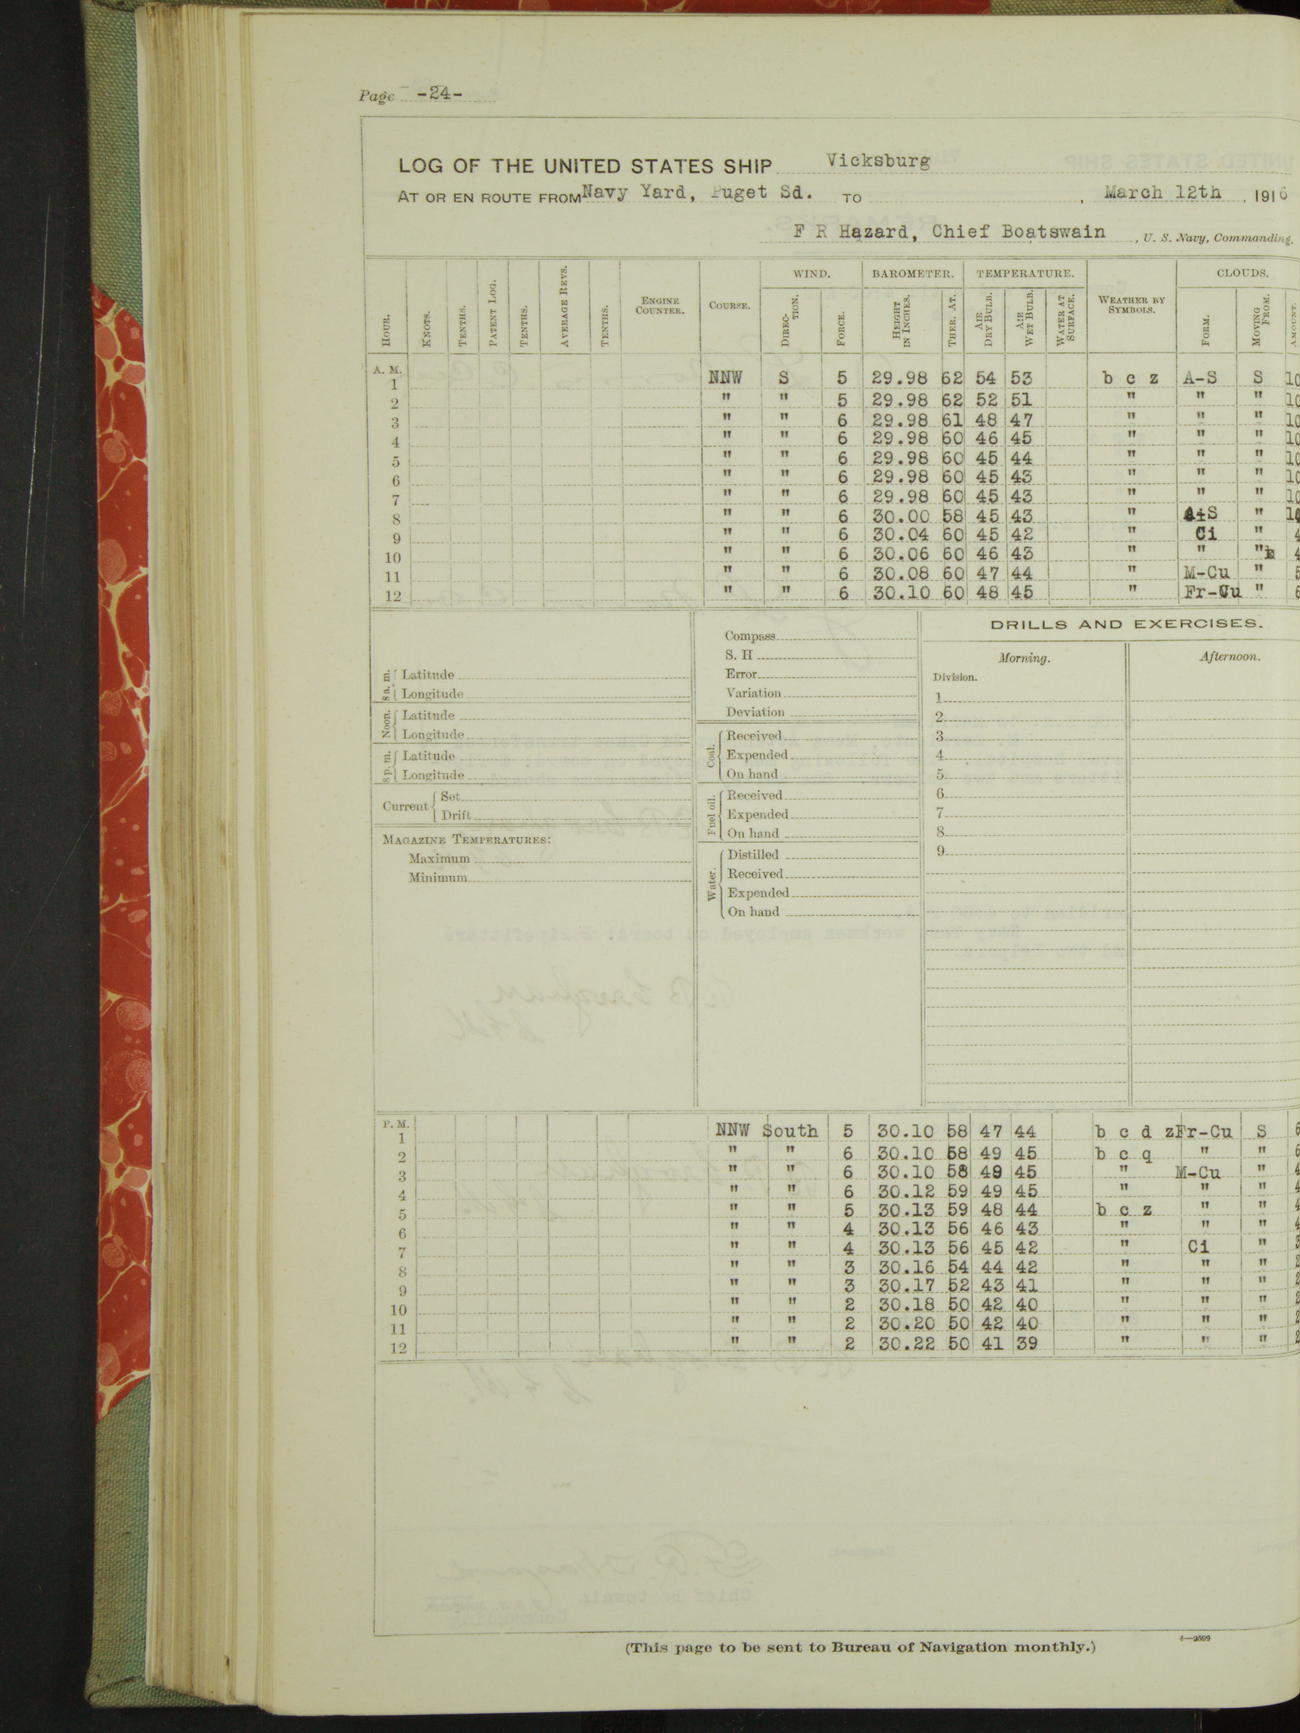 Page -24-
LOG OF THE UNITED STATES SHIP Vicksburg
AT OR EN ROUTE FROM Navy Yard, Puget Sd. TO , March 12th , 1916
F R Hazard, Chief Boatswain , U. S. Navy, Commanding.
HOUR. KNOTS. TENTHS. PATENT LOG. TENTHS. AVERAGE REVS. TENTHS. ENGINE COUNTER. COURSE. WIND. DIRECTION. FORCE. BAROMETER. HEIGHT IN INCHES. THER. AT. TEMPERATURE. AIR DRY BULB. AIR WET BULB. WATER AT SURFACE. WEATHER BY SYMBOLS. CLOUDS. FORM. MOVING FROM. AMOUNT.
A. M.
1 NNW S 5 29.98 62 54 53 b c z A-S S 10
2 " " 5 29.98 62 52 51 " " " 10
3 " " 6 29.98 61 48 47 " " " 10
4 " " 6 29.98 60 46 45 " " " 10
5 " " 6 29.98 60 45 44 " " " 10
6 " " 6 29.98 60 45 43 " " " 10
7 " " 6 29.98 60 45 43 " " " 10
8 " " 6 30.00 58 45 43 " A-S "
9 " " 6 30.04 60 45 42 " Ci " 4
10 " " 6 30.06 60 46 43 " " " 4
11 " " 6 30.08 60 47 44 " M-Cu " 5
12 " " 6 30.10 60 48 45 " Fr-Cu " 6
8 a. m. Latitude
Longitude
Noon. Latitude
Longitude
8 p. m. Latitude
Longitude
Current Set
Drift
MAGAZINE TEMPERATURES:
Maximum
Minimum
Compass
S. H
Error
Variation
Deviation
Coal. Received
Expended
On hand
Fuel oil. Received
Expended
On hand
Water. Distilled
Received
Expended
On hand
DRILLS AND EXERCISES.
Morning. Afternoon.
Division.
1
2
3
4
5
6
7
8
9
P. M.
1 NNW South 5 30.10 58 47 44 b c d z Fr-Cu S 6
2 " " 6 30.10 58 49 45 b c q " " 6
3 " " 6 30.10 58 49 45 " M-Cu " 4
4 " " 6 30.12 59 49 45 " " " 4
5 " " 5 30.13 59 48 44 b c z " " 4
6 " " 4 30.13 56 46 43 " " " 4
7 " " 4 30.13 56 45 42 " Ci " 3
8 " " 3 30.16 54 44 42 " " " 2
9 " " 3 30.17 52 43 41 " " " 2
10 " " 2 30.18 50 42 40 " " " 2
11 " " 2 30.20 50 42 40 " " " 2
12 " " 2 30.22 50 41 39 " " " 2
(This page to be sent to Bureau of Navigation monthly.)